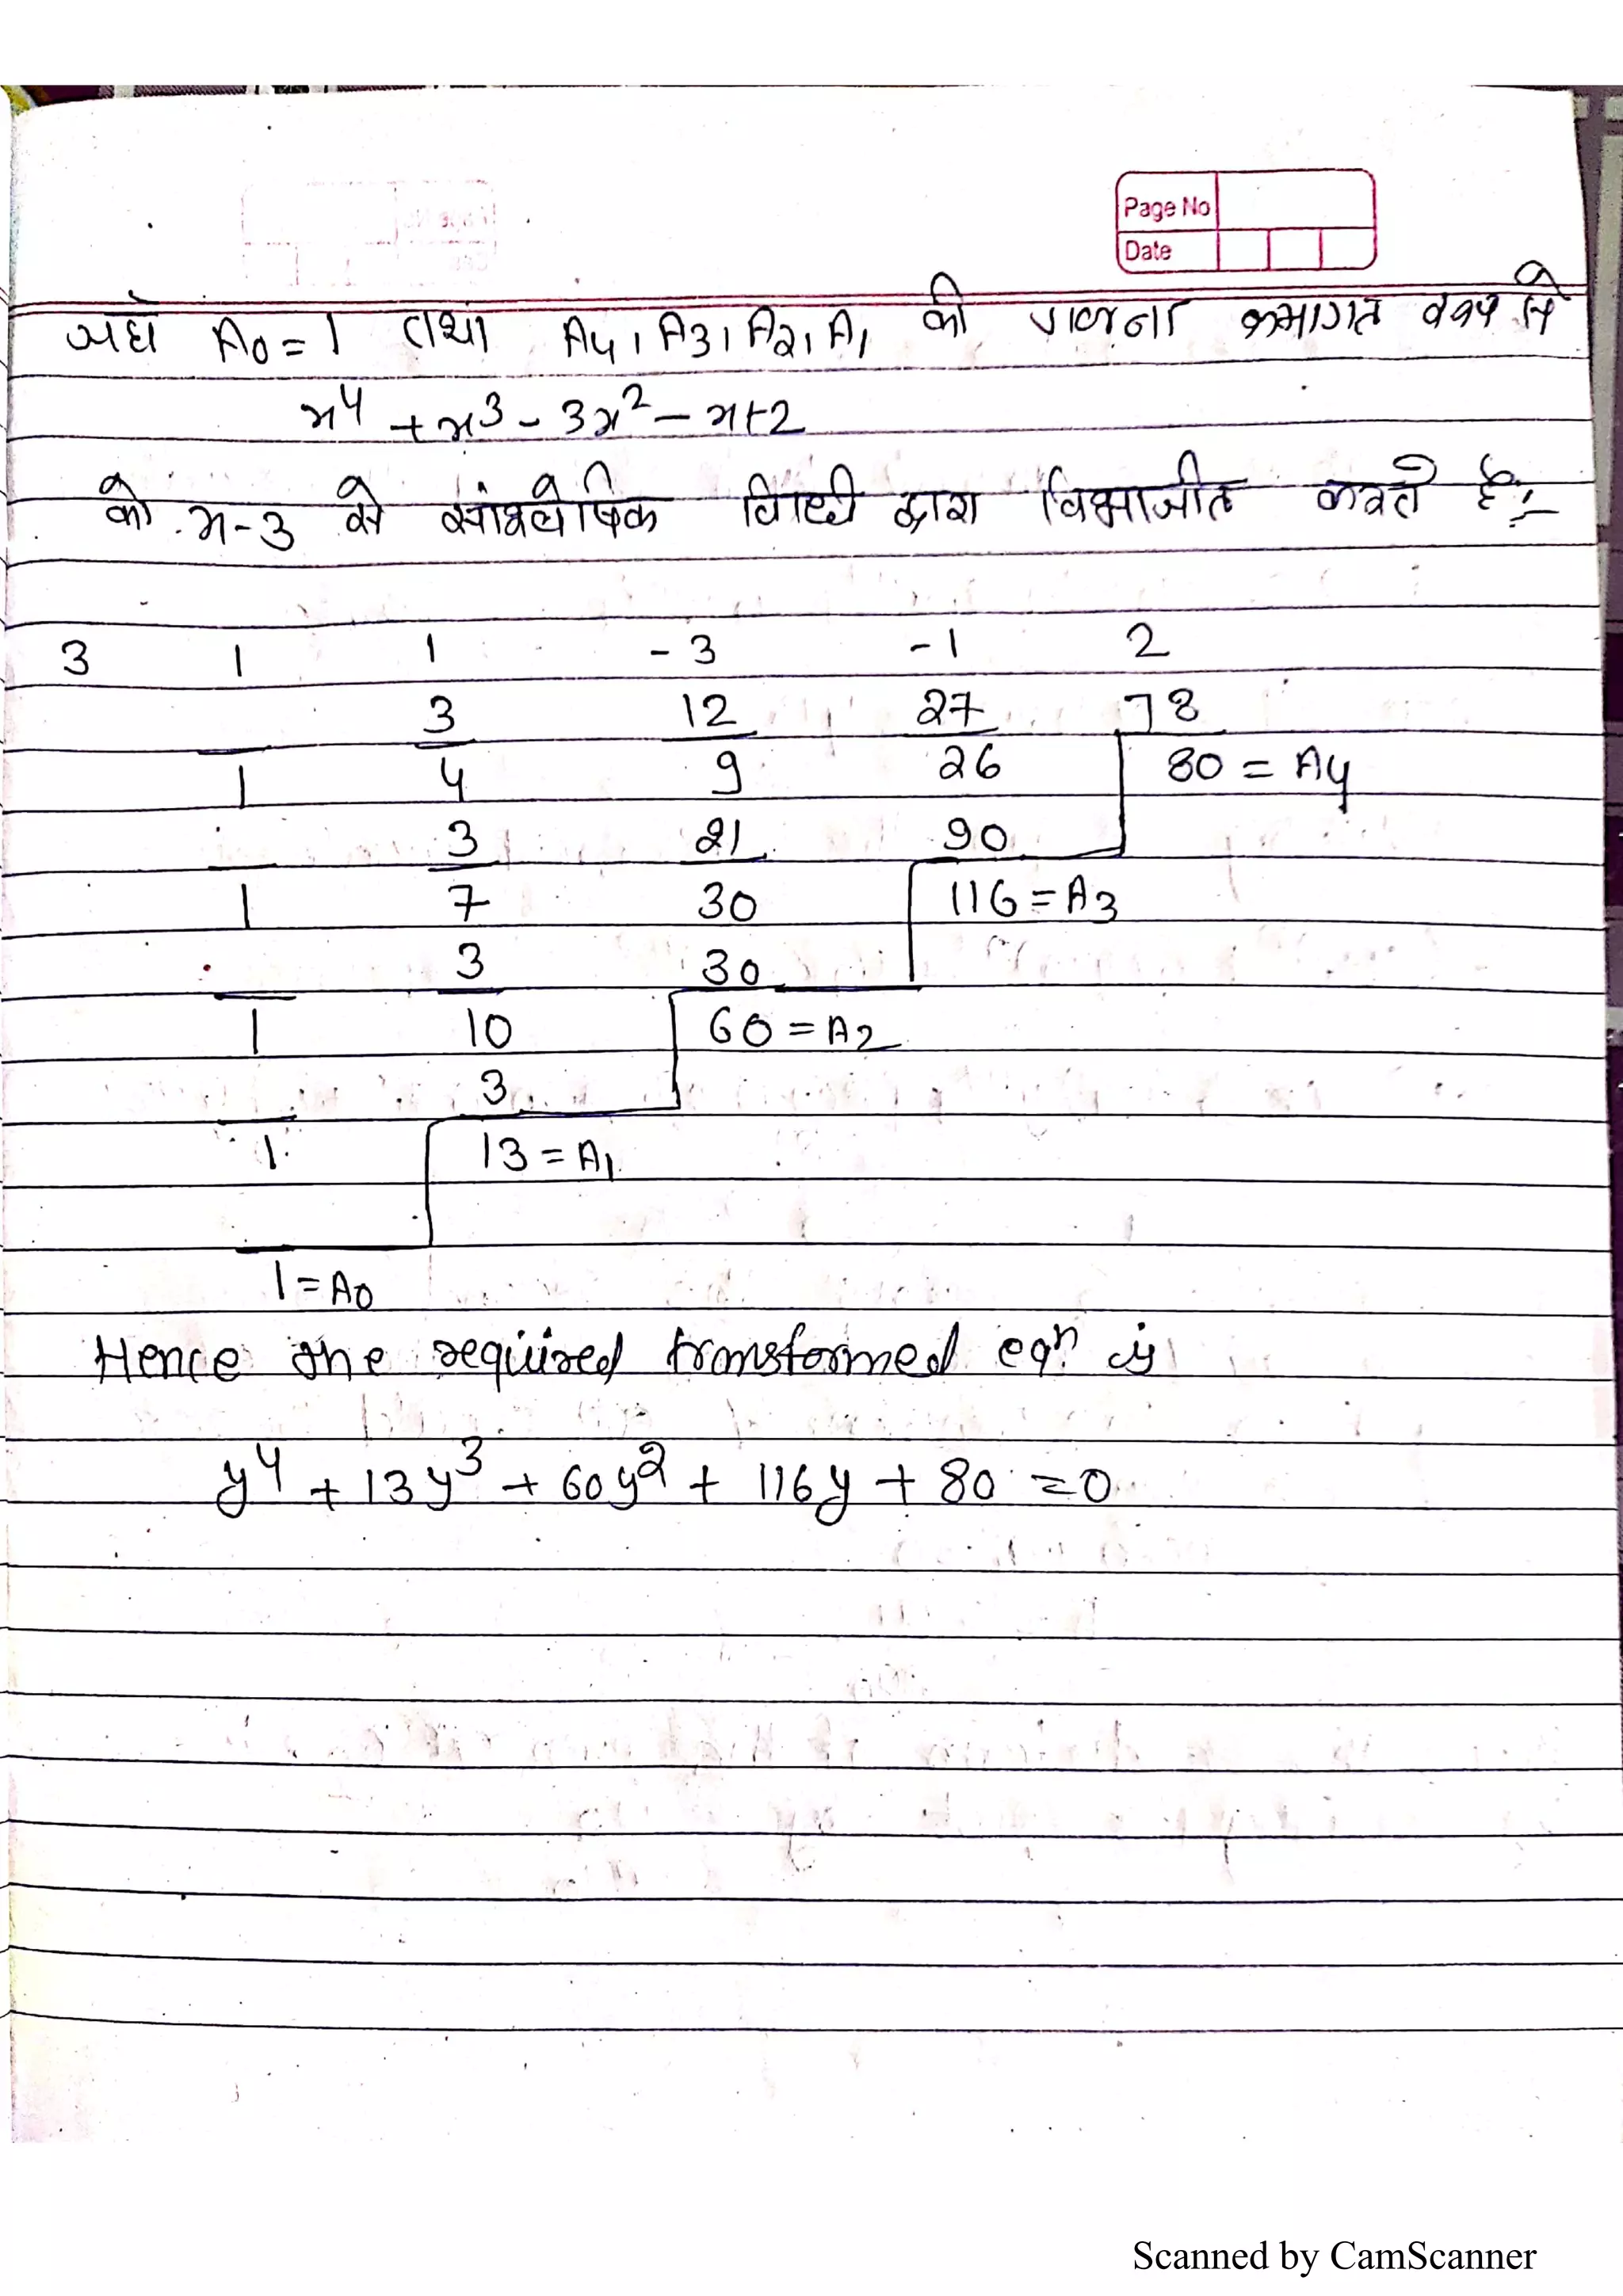 Page No
Date
यहाँ A0 = 1 तथा A4, A3, A2, A1 की गणना क्रमागत रूप से
x⁴ + x³ - 3x² - x + 2
को x-3 से सांश्लेषिक विधी द्वारा विभाजीत करते है:-
3 1 1 -3 -1 2
3 12 27 78
1 4 9 26 80 = A4
3 21 90
1 7 30 116 = A3
3 30
1 10 60 = A2
3
1 13 = A1
1 = A0
Hence the required transformed eqⁿ is
y⁴ + 13y³ + 60y² + 116y + 80 = 0
Scanned by CamScanner